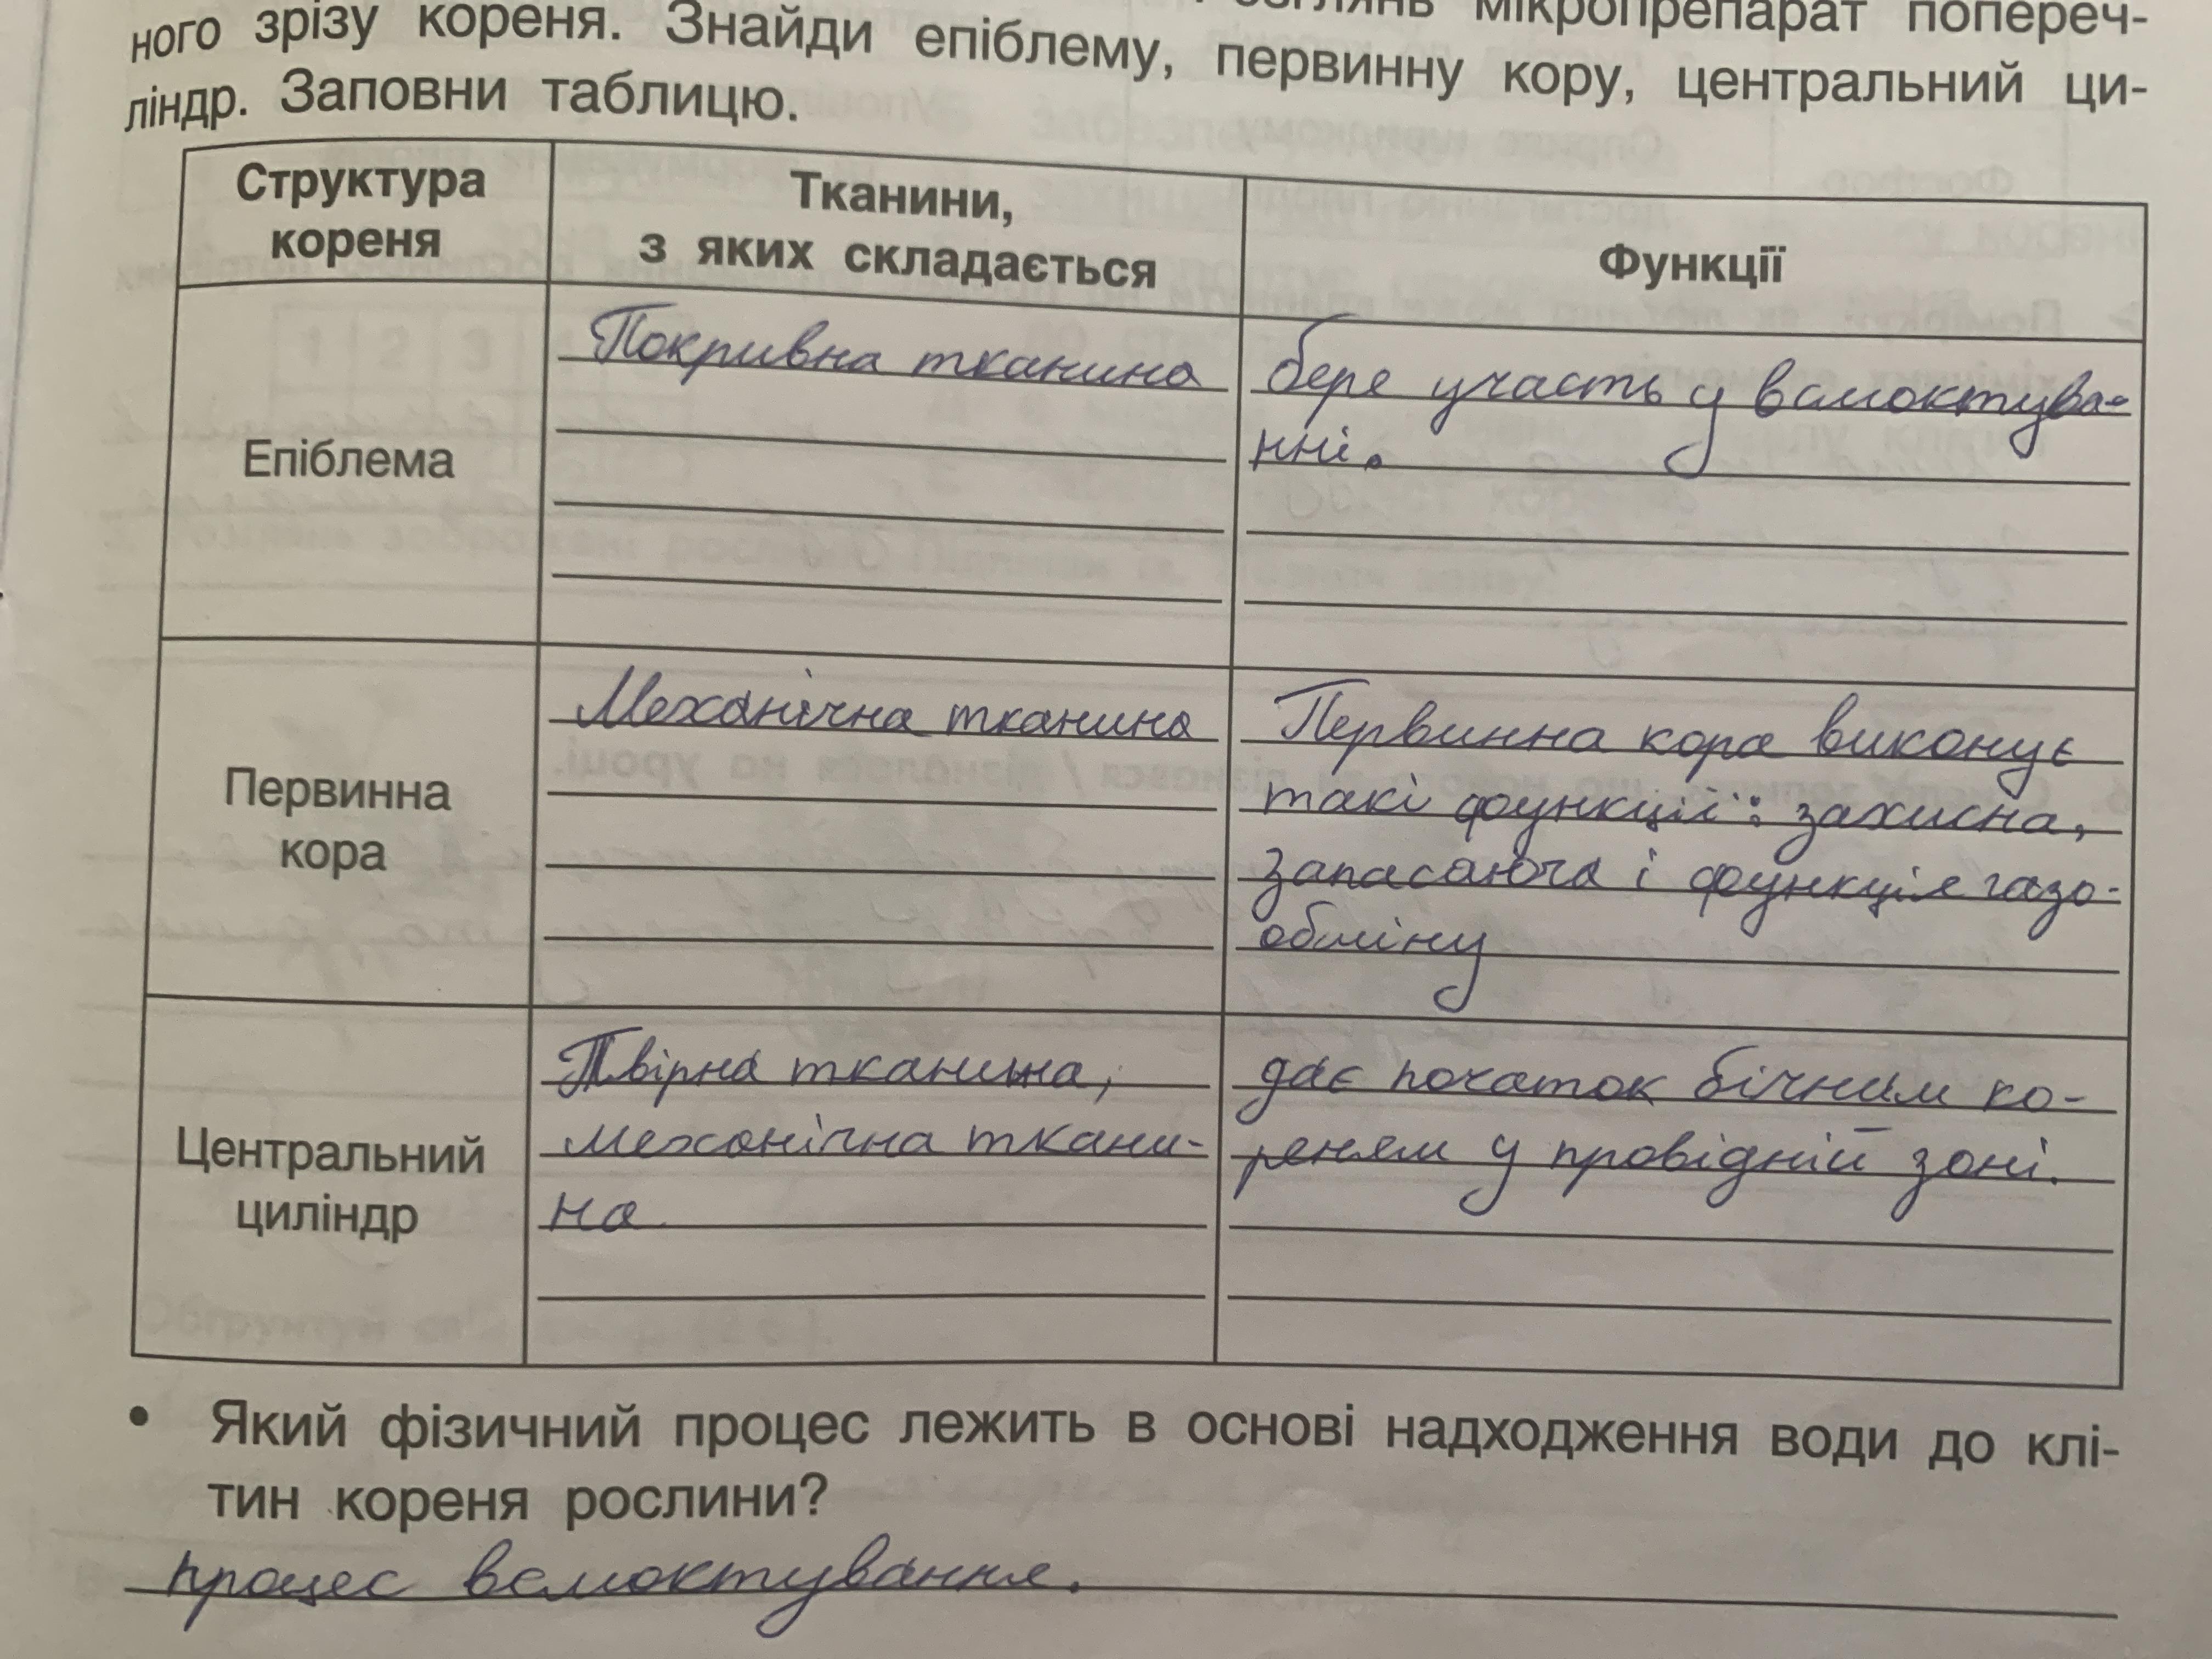 мікропрепарат попереч-
ного зрізу кореня. Знайди епіблему, первинну кору, центральний ци-
ліндр. Заповни таблицю.
Структура
кореня
Тканини,
з яких складається
Функції
Епіблема
Покривна тканина
бере участь у всмоктува-
нні.
Первинна
кора
Механічна тканина
Первинна кора виконує
такі функції: захисна,
запасаюча і функція газо-
обміну
Центральний
циліндр
Твірна тканина,
механічна ткани-
на
дає початок бічним ко-
реням у провідній зоні.
• Який фізичний процес лежить в основі надходження води до клі-
тин кореня рослини?
процес всмоктування.